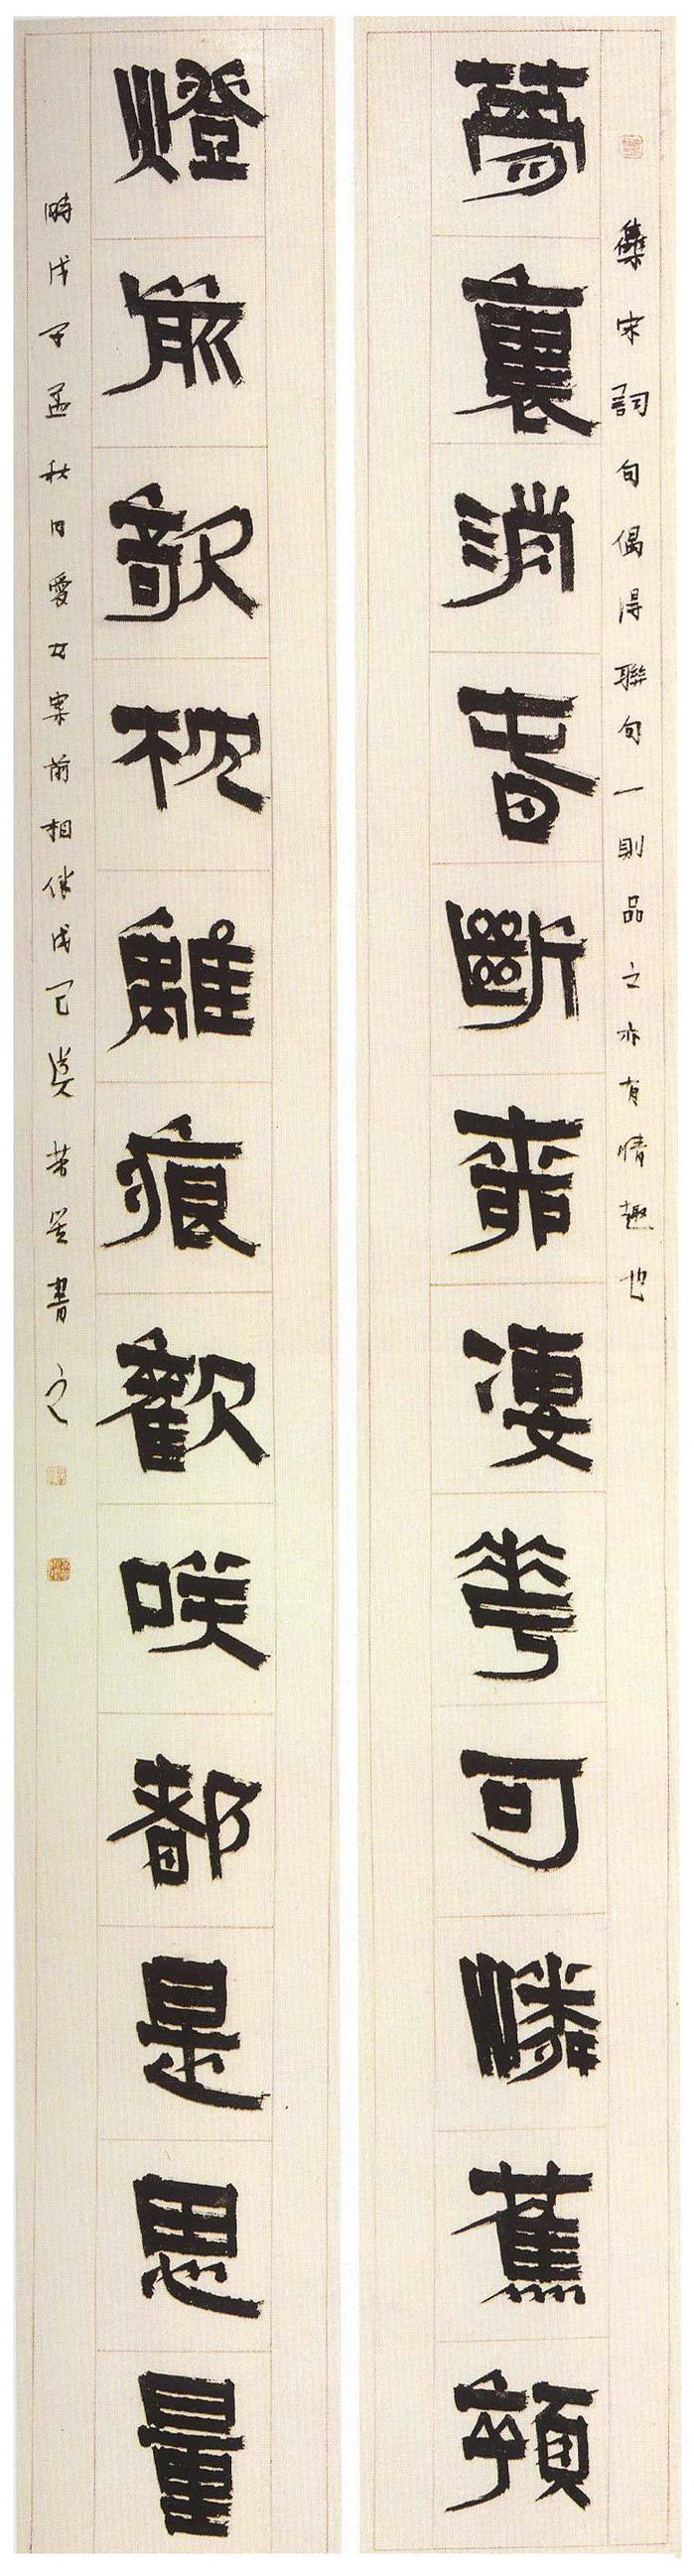 集宋詞句偶得聯句一則品之亦有情趣也
夢裏消春斷凄花可憐蕉顇
燈前欹枕離痕歡咲都是思量
時戊子孟秋日愛女案前相伴書之